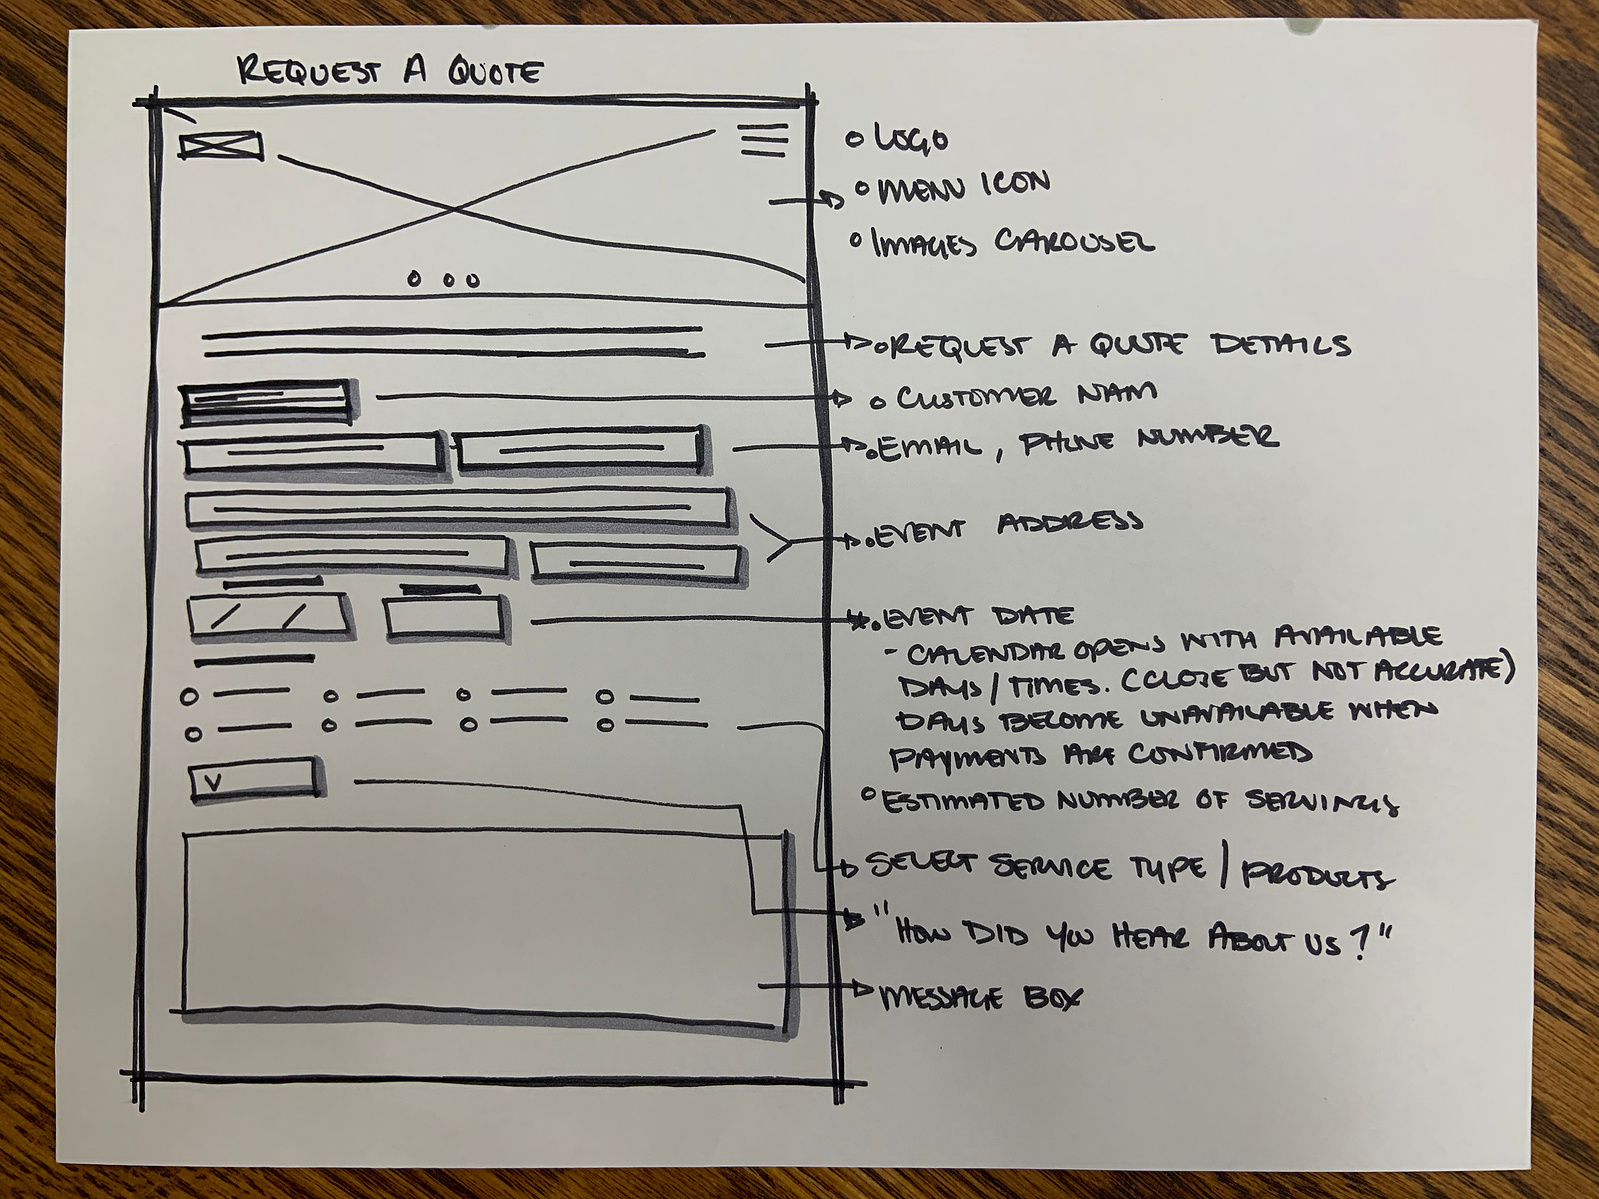 REQUEST A QUOTE
LOGO
MENU ICON
IMAGES CAROUSEL
REQUEST A QUOTE DETAILS
CUSTOMER NAM
EMAIL, PHONE NUMBER
EVENT ADDRESS
EVENT DATE
- CALENDAR OPENS WITH AVAILABLE
DAYS/TIMES. (CLOSE BUT NOT ACCURATE)
DAYS BECOME UNAVAILABLE WHEN
PAYMENTS ARE CONFIRMED
ESTIMATED NUMBER OF SERVINGS
SELECT SERVICE TYPE / PRODUCTS
"HOW DID YOU HEAR ABOUT US?"
MESSAGE BOX